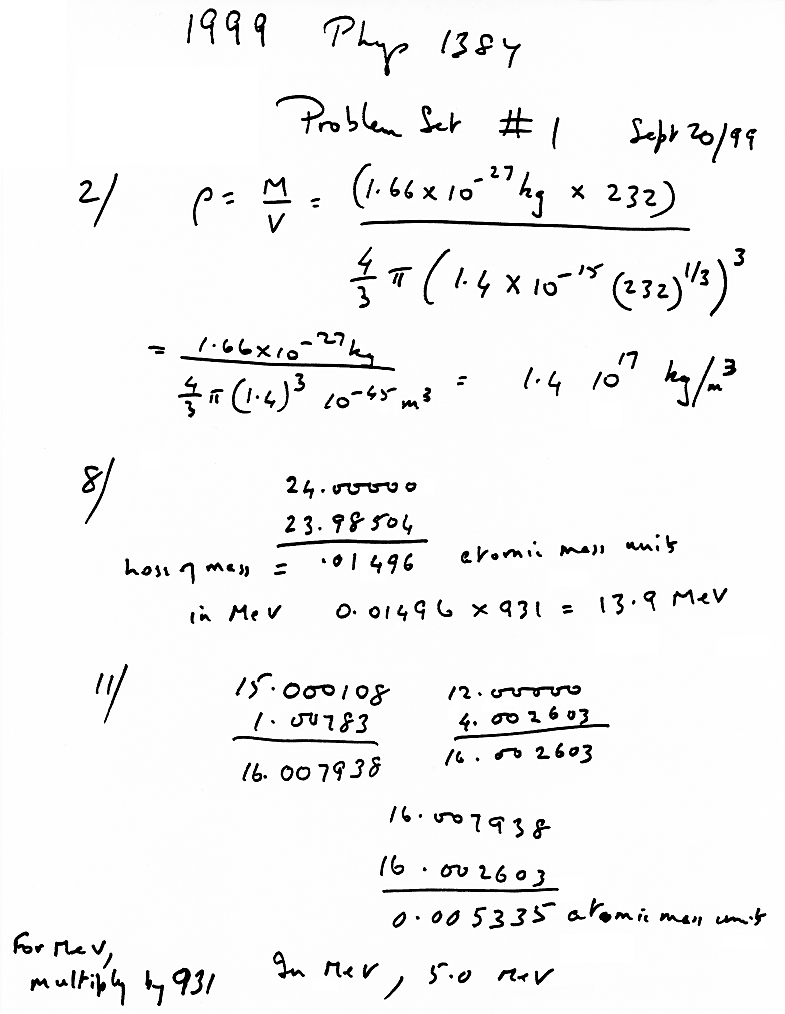 1999 Phys 138Y
Problem Set # 1 Sept 20/99
2/ ρ = M/V = (1.66 x 10^-27 kg x 232) / (4/3 π (1.4 x 10^-15 (232)^1/3)^3)
= 1.66x10^-27 kg / (4/3 π (1.4)^3 10^-45 m^3) = 1.4 10^17 kg/m^3
8/ 24.00000
23.98504
Loss of mass = .01496 atomic mass units
in MeV 0.01496 x 931 = 13.9 MeV
11/ 15.000108 12.00000
1.00783 4.002603
16.007938 16.002603
16.007938
16.002603
0.005335 atomic mass units
For MeV,
multiply by 931 In MeV, 5.0 MeV